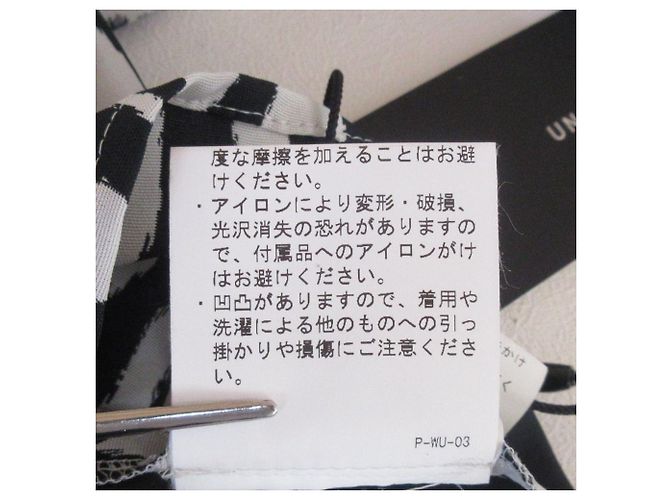 度な摩擦を加えることはお避
けください。
・アイロンにより変形・破損、
光沢消失の恐れがありますの
で、付属品へのアイロンがけ
はお避けください。
・凹凸がありますので、着用や
洗濯による他のものへの引っ
掛かりや損傷にご注意くださ
い。
P-WU-03
UN
かけ
く